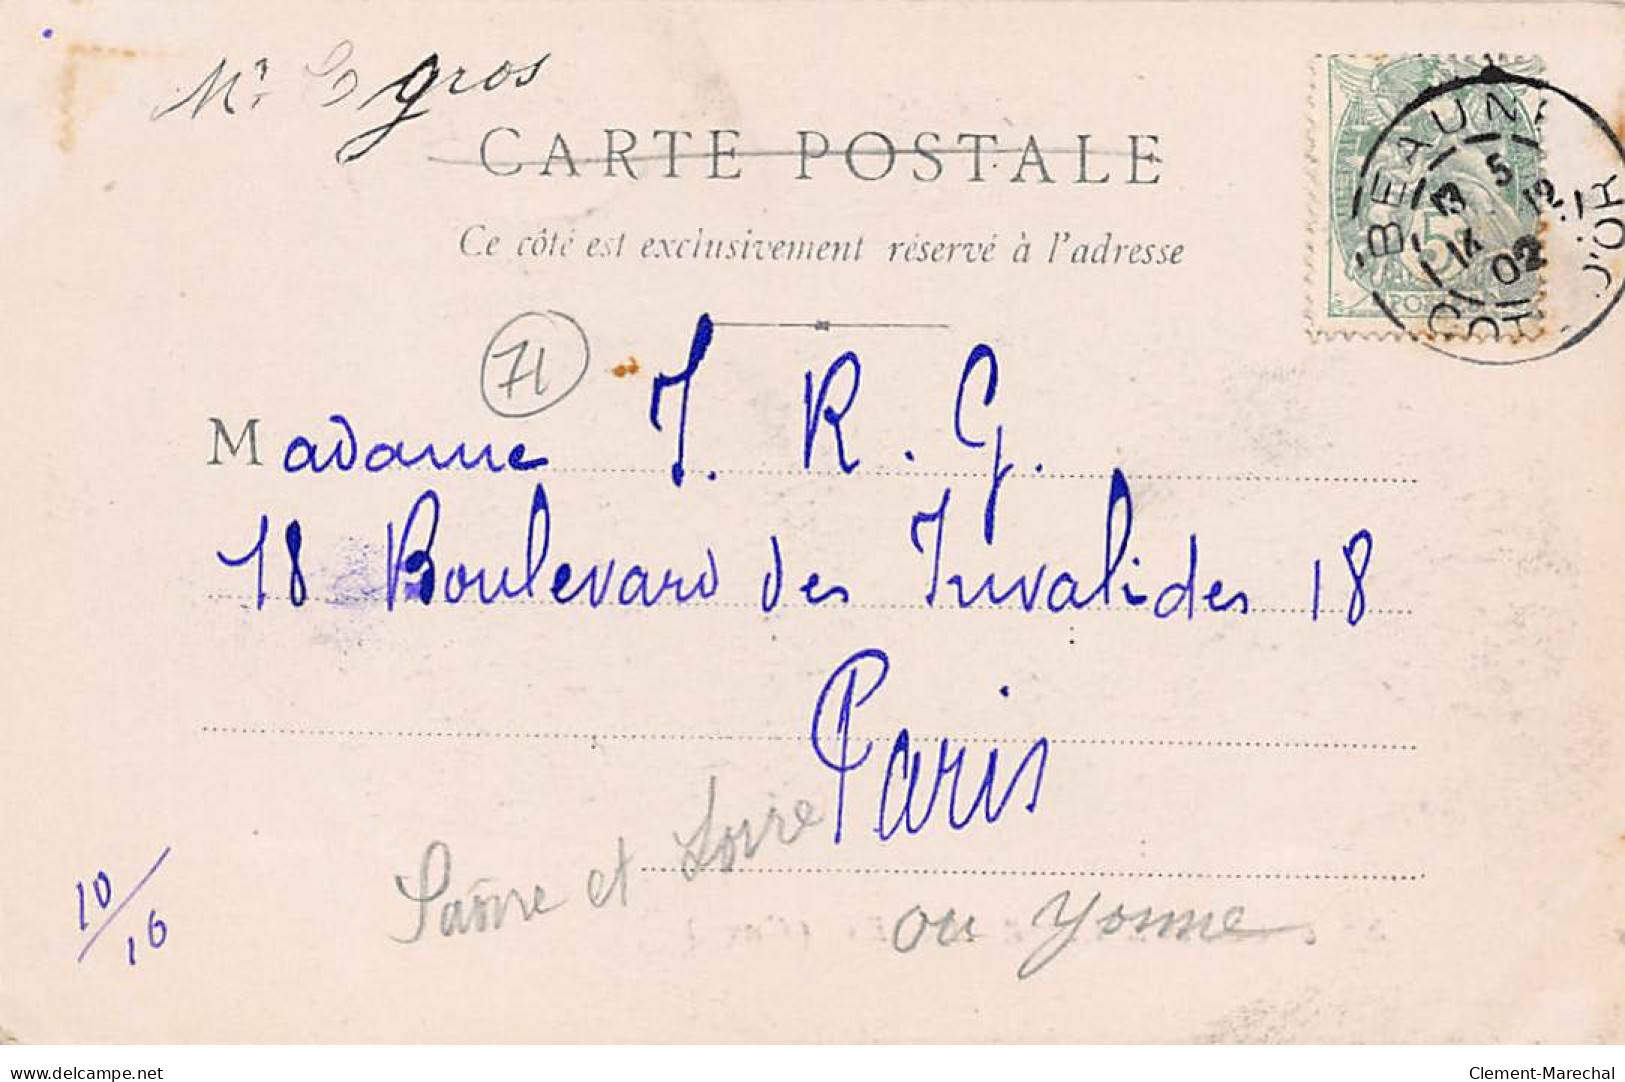 Mr gros
CARTE POSTALE
Ce côté est exclusivement réservé à l'adresse
71
Madame J. R. G.
18 Boulevard des Invalides 18
Paris
Saône et Loire
ou Yonne
10/16
BEAUNE
CÔTE D'OR
5
12
02
5
delcampe.net
Clement-Marechal